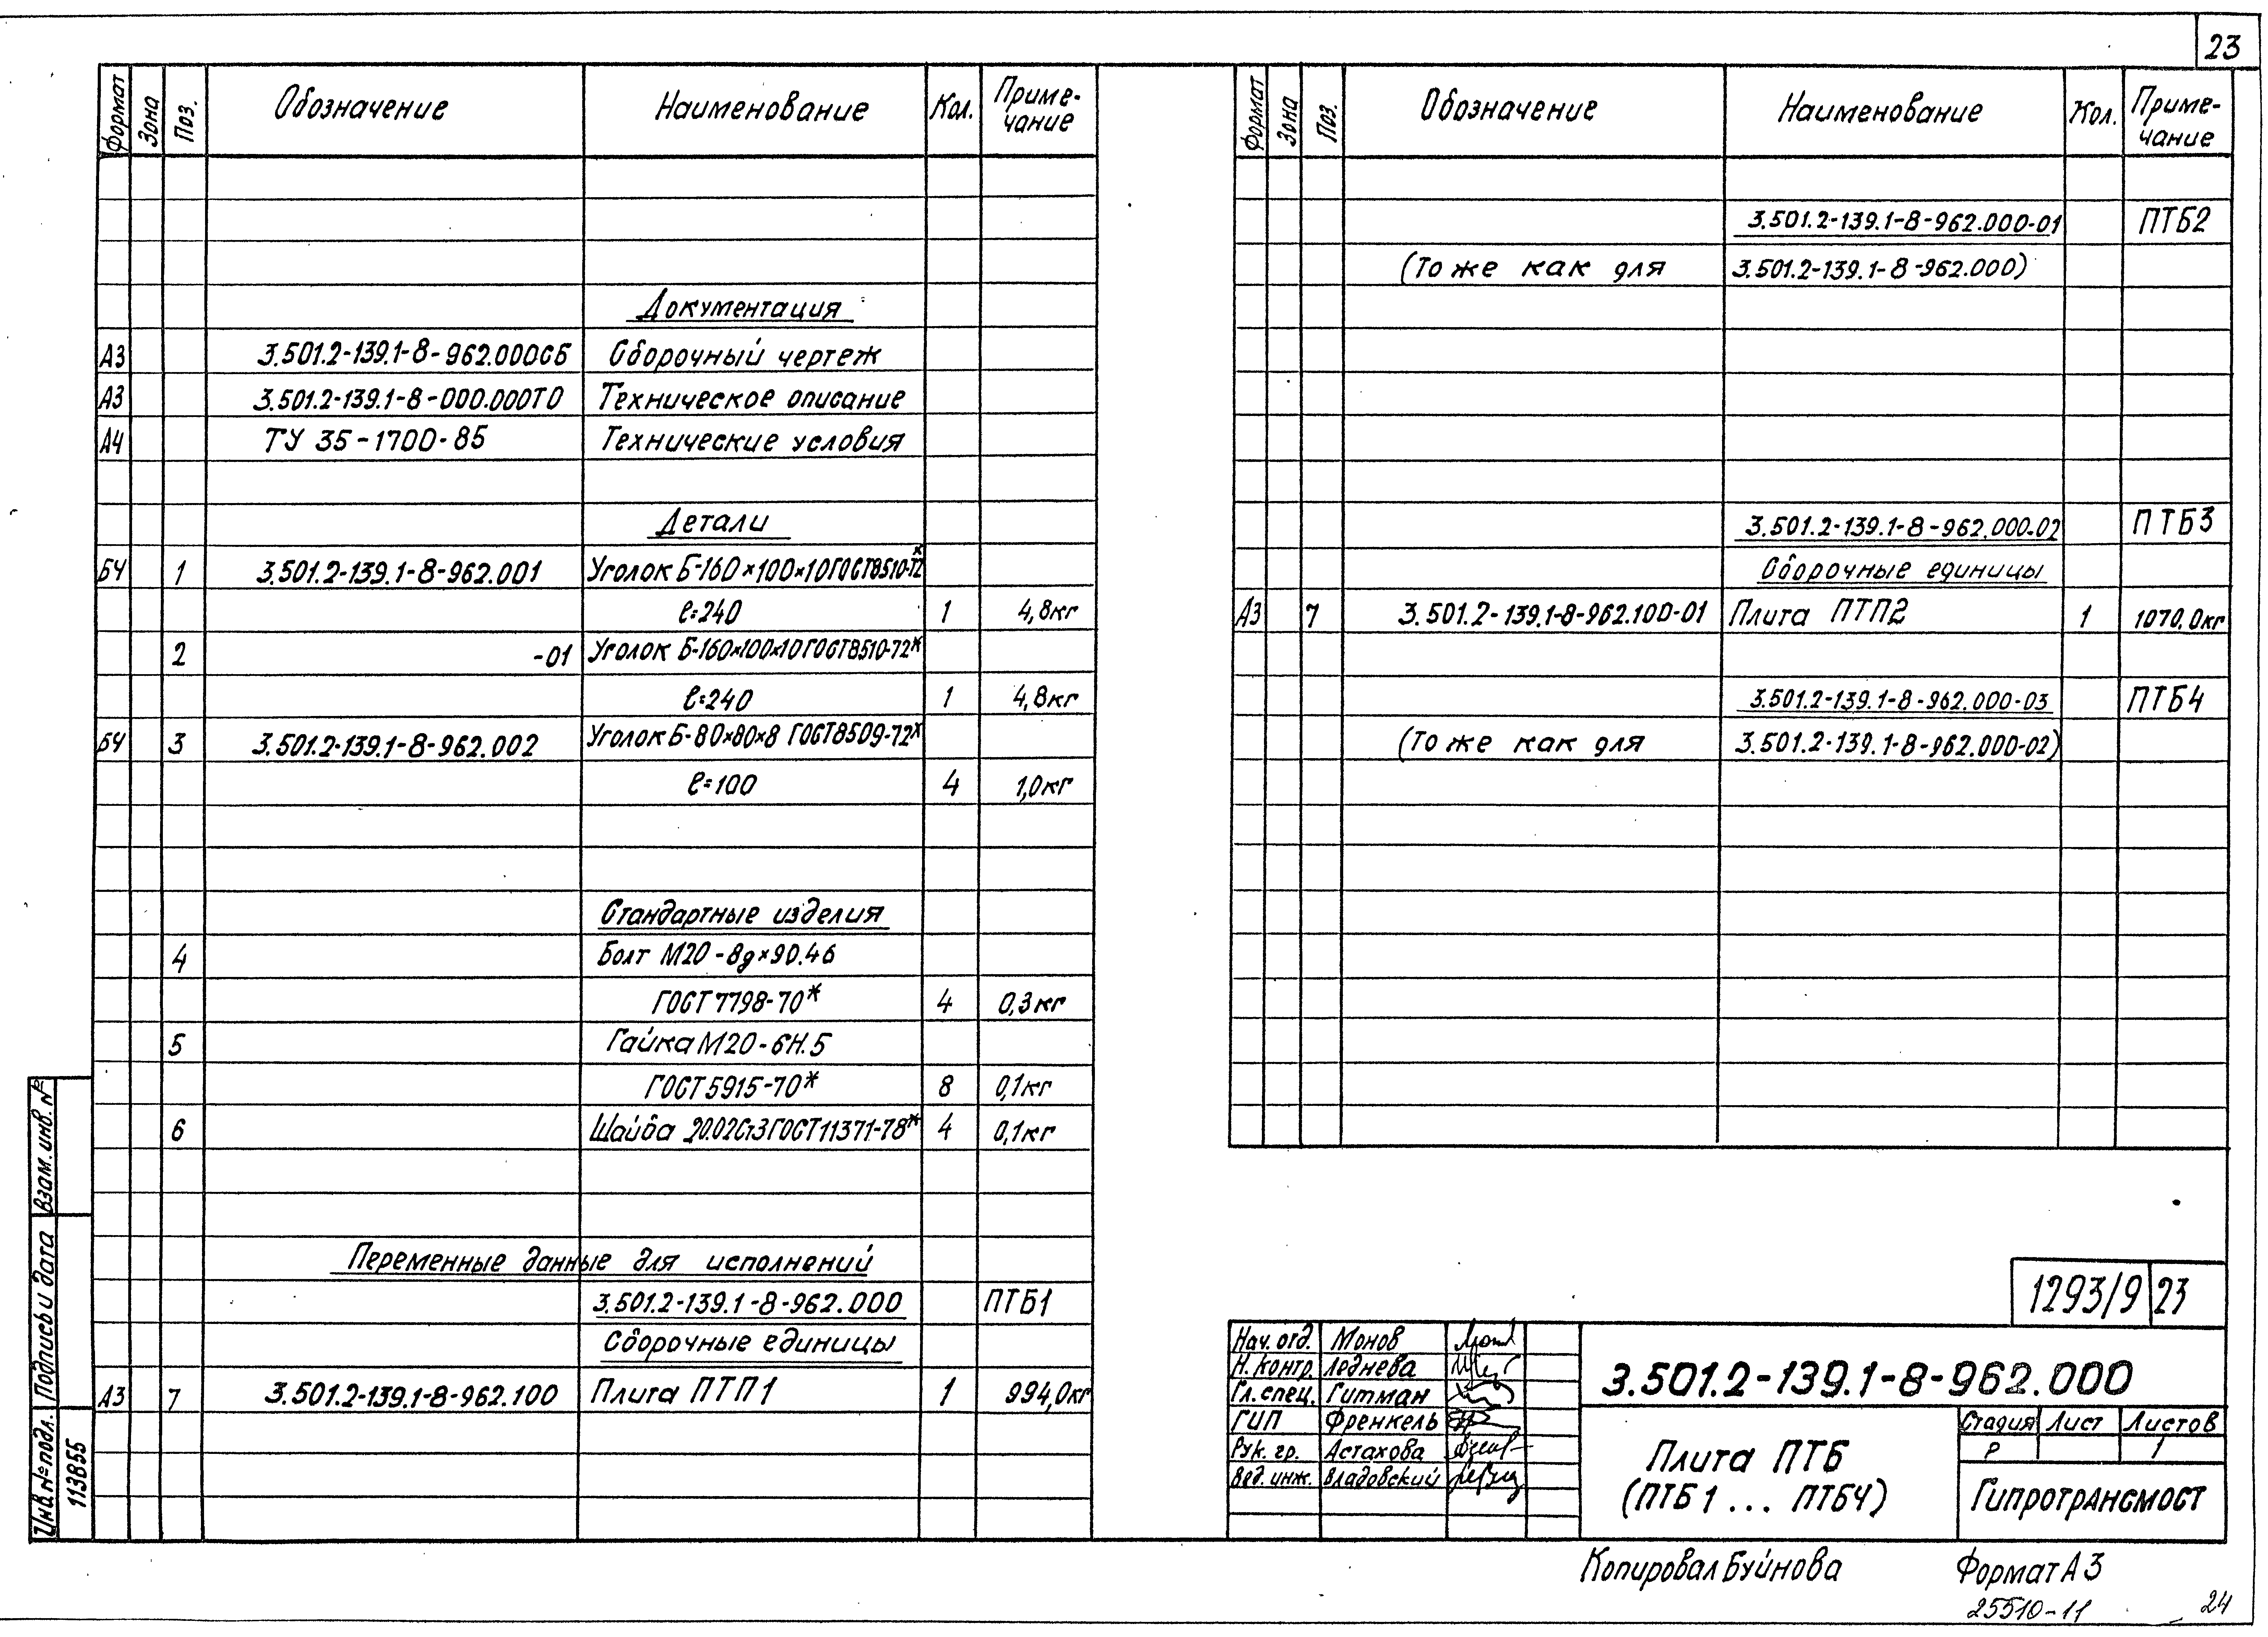 23
Формат Зона Поз. Обозначение Наименование Кол. Приме-
чание
Документация
А3 3.501.2-139.1-8-962.000СБ Сборочный чертеж
А3 3.501.2-139.1-8-000.000ТО Техническое описание
А4 ТУ 35-1700-85 Технические условия
Детали
БЧ 1 3.501.2-139.1-8-962.001 Уголок Б-160×100×10 ГОСТ8510-72*
ℓ=240 1 4,8кг
2 -01 Уголок Б-160×100×10 ГОСТ8510-72*
ℓ=240 1 4,8кг
БЧ 3 3.501.2-139.1-8-962.002 Уголок Б-80×80×8 ГОСТ8509-72*
ℓ=100 4 1,0кг
Стандартные изделия
4 Болт М20-8g×90.46
ГОСТ 7798-70* 4 0,3кг
5 Гайка М20-6Н.5
ГОСТ 5915-70* 8 0,1кг
6 Шайба 20.02Ст3 ГОСТ11371-78* 4 0,1кг
Переменные данные для исполнений
3.501.2-139.1-8-962.000 ПТБ1
Сборочные единицы
А3 7 3.501.2-139.1-8-962.100 Плита ПТП1 1 994,0кг
Формат Зона Поз. Обозначение Наименование Кол. Приме-
чание
3.501.2-139.1-8-962.000-01 ПТБ2
(То же как для 3.501.2-139.1-8-962.000)
3.501.2-139.1-8-962.000-02 ПТБ3
Сборочные единицы
А3 7 3.501.2-139.1-8-962.100-01 Плита ПТП2 1 1070,0кг
3.501.2-139.1-8-962.000-03 ПТБ4
(То же как для 3.501.2-139.1-8-962.000-02)
Взам. инв. №
Подпись и дата
Инв. № подл.
113855
1293/9 23
Нач. отд. Монов
Н. контр. Леднева
Гл. спец. Гитман
ГИП Френкель
Рук. гр. Астахова
Вед. инж. Владовский
3.501.2-139.1-8-962.000
Плита ПТБ
(ПТБ1 ... ПТБ4)
Стадия Лист Листов
Р 1
Гипротрансмост
Копировал Буйнова Формат А3
25510-11 24